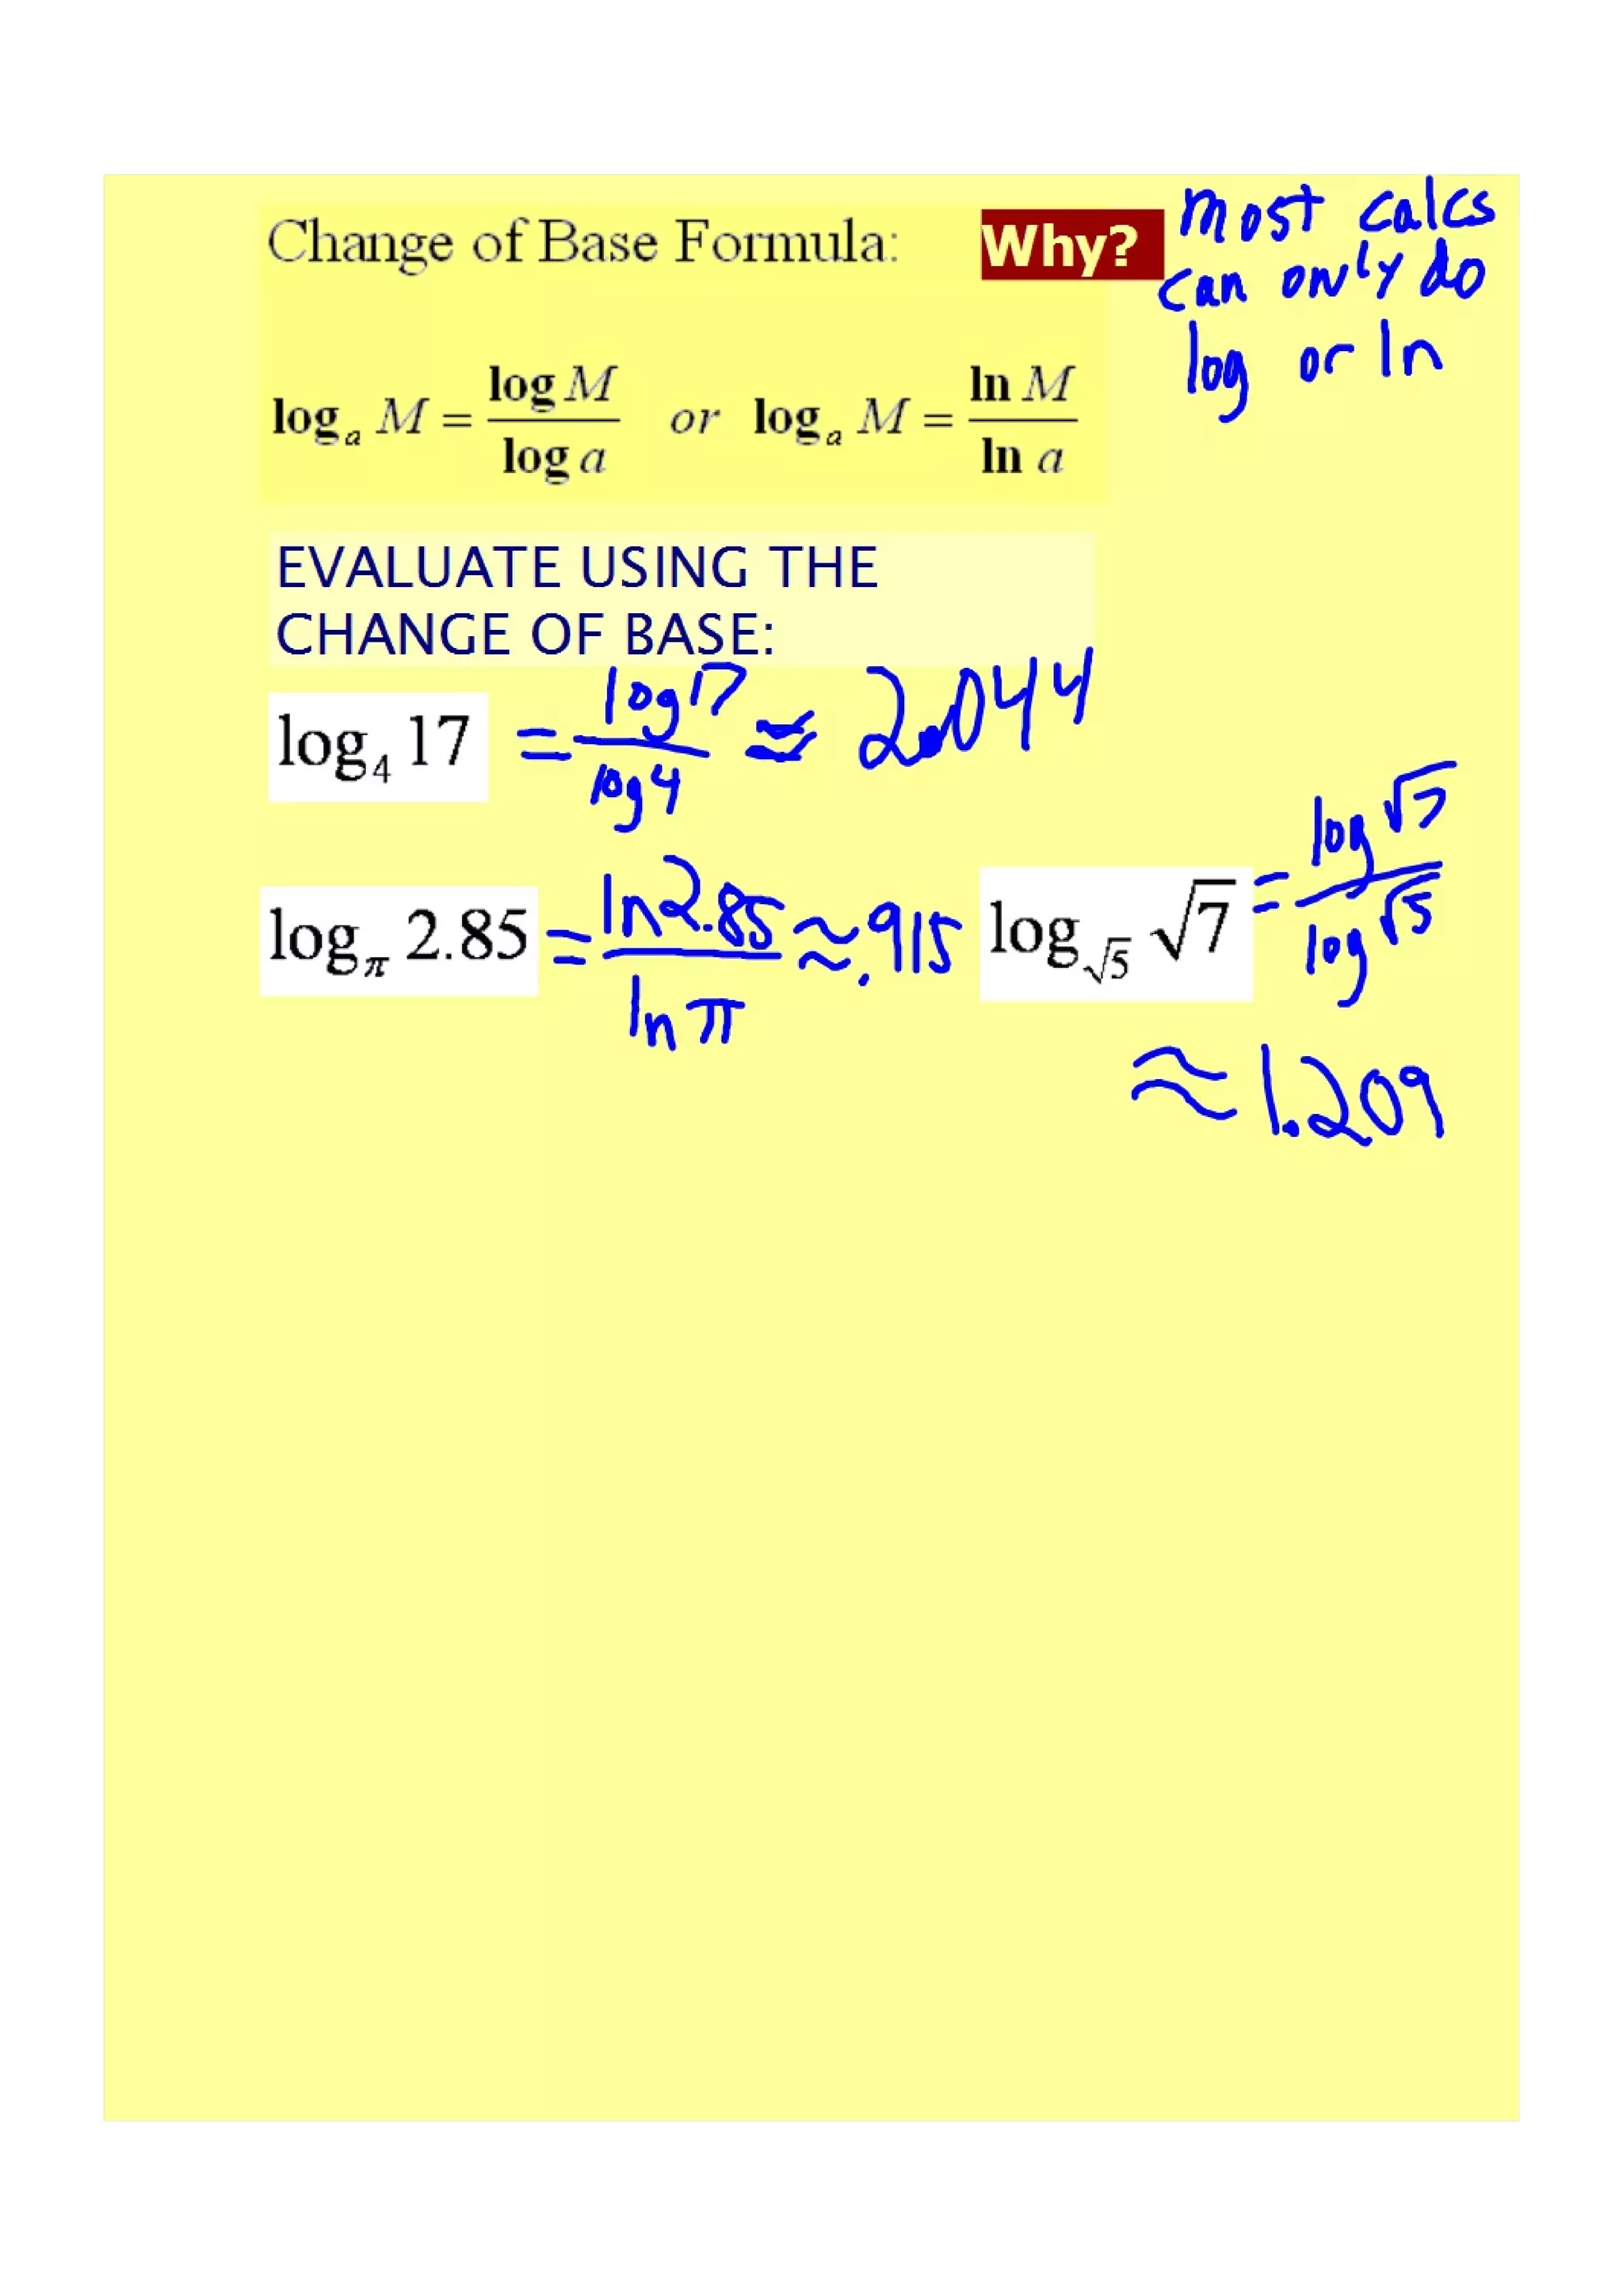 Change of Base Formula: Why? most calcs
can only do
log or ln
logₐ M = log M / log a or logₐ M = ln M / ln a
EVALUATE USING THE
CHANGE OF BASE:
log₄ 17 = log 17 / log 4 ≈ 2.044
log_π 2.85 = ln 2.85 / ln π ≈ .915
log_√5 √7 = log √7 / log √5
≈ 1.209